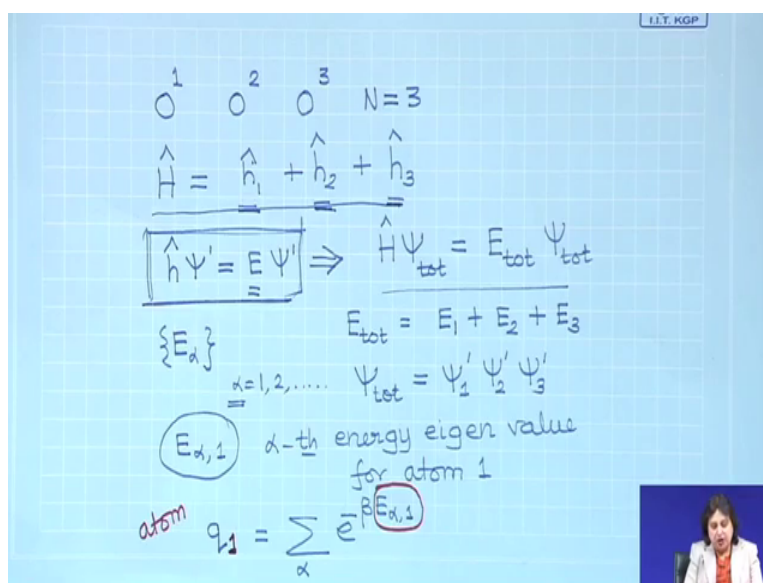 I.I.T. KGP
O¹ O² O³ N=3
Ĥ = ĥ₁ + ĥ₂ + ĥ₃
ĥΨ' = EΨ' ⇒ ĤΨtot = Etot Ψtot
Etot = E₁ + E₂ + E₃
{Eα}
α=1,2,..... Ψtot = Ψ₁' Ψ₂' Ψ₃'
Eα,1 α-th energy eigen value
for atom 1
atom q₁ = ∑α e^-βEα,1